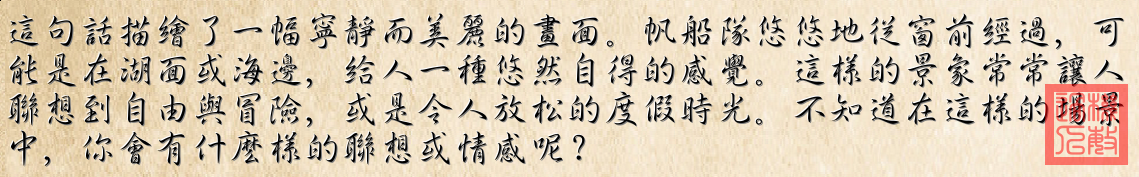 這句話描繪了一幅寧靜而美麗的畫面。帆船隊悠悠地從窗前經過，可
能是在湖面或海邊，給人一種悠然自得的感覺。這樣的景象常常讓人
聯想到自由與冒險，或是令人放松的度假時光。不知道在這樣的場景
中，你會有什麼樣的聯想或情感呢？